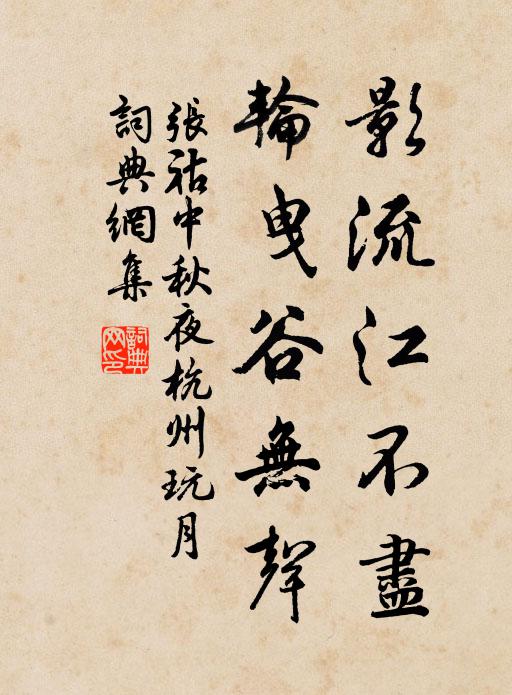 影流江不盡
輪曳谷無聲
張祜中秋夜杭州玩月
詞典網集
詞典網印